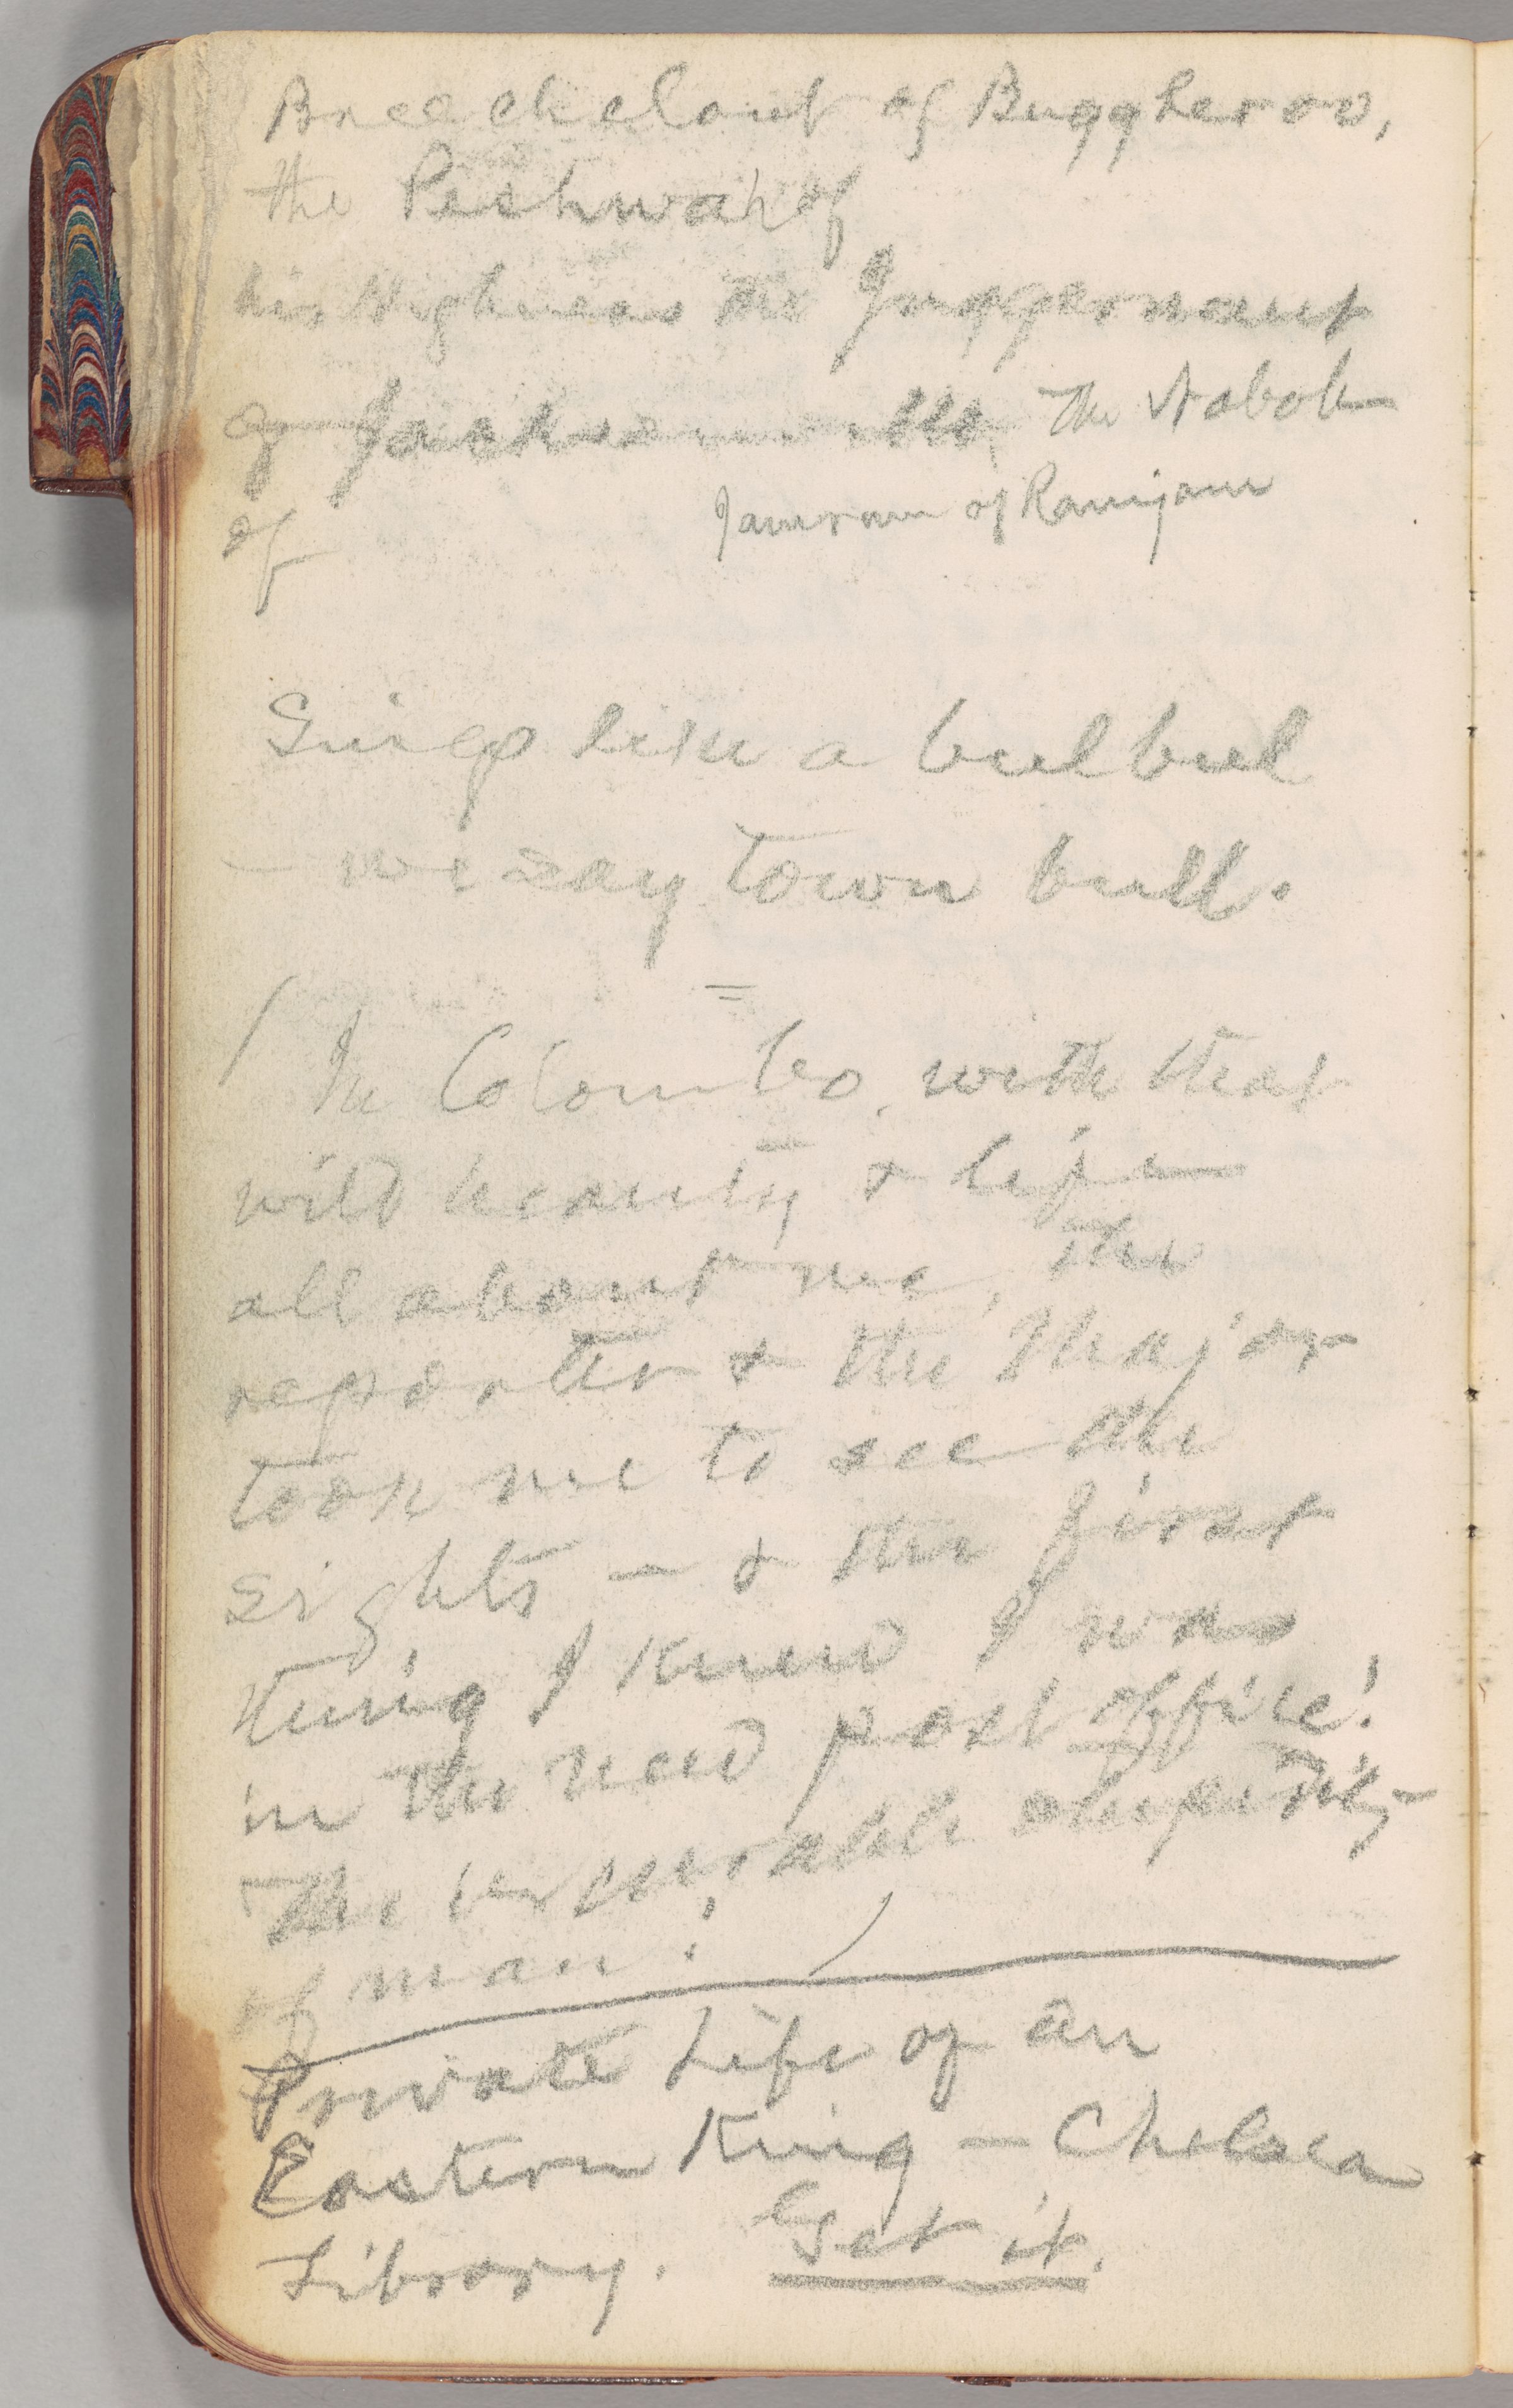 Breechclout of Buggheroo,
the Peshwah of
his Highness the Juggernaut
of Jacksonville, the Nabob
of
Jamram of Ramjam
Sings like a bulbul
— we say town bull.
=
/ In Colombo, with that
wild beauty & life
all about me, the
reporter & the Major
took me to see the
sights — & the first
thing I knew I was
in the new post office!
— The inexorable stupidity
of man! /
Private Life of an
Eastern King — Chelsea
Library. Get it.